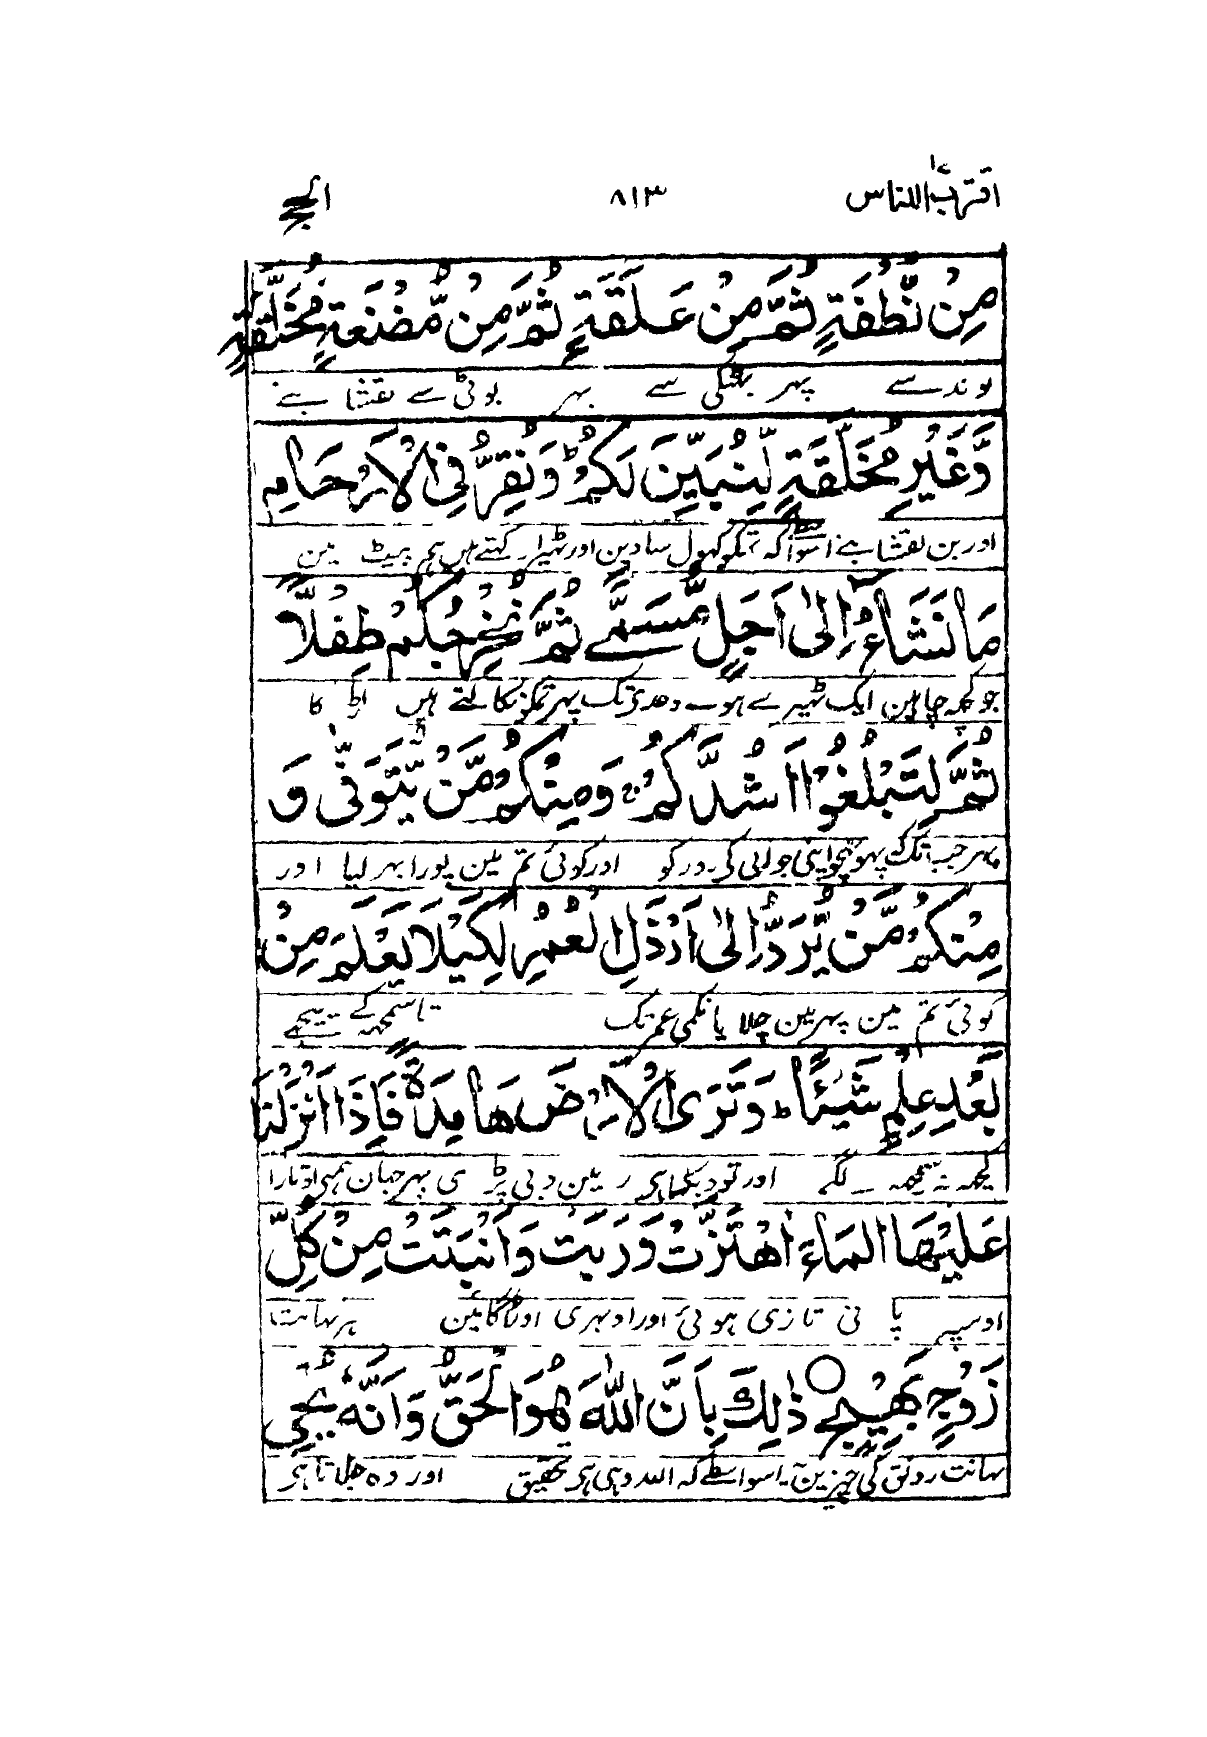 اقترب للناس ۱۷ ۸۱۳ الحج
مِنْ نُّطْفَةٍ ثُمَّ مِنْ عَلَقَةٍ ثُمَّ مِنْ مُّضْغَةٍ مُّخَلَّقَةٍ
بوند سے پہر پھٹکی سے پہر بوٹی سے نقشا بنے
وَّغَيْرِ مُخَلَّقَةٍ لِّنُبَيِّنَ لَكُمْ ؕ وَنُقِرُّ فِى الْاَرْحَامِ
اور بن نقشا بنے اسواسطے کہ تمکو کھول سنا دین اور ٹھیرا رکہتے ہیں ہم پیٹ مین
مَا نَشَآءُ اِلٰٓى اَجَلٍ مُّسَمًّى ثُمَّ نُخْرِجُكُمْ طِفْلًا
جو کچھ چاہین ایک ٹھیرے ہوے وعدی تک پہر تمکو نکالتے ہیں لڑکا
ثُمَّ لِتَبْلُغُوْٓا اَشُدَّكُمْ ۚ وَمِنْكُمْ مَّنْ يُّتَوَفّٰى وَ
پہر جب تک کہ پہونچو اپنی جوانی کی زور کو اور کوئی تم مین پورا بھر لیا اور
مِنْكُمْ مَّنْ يُّرَدُّ اِلٰٓى اَرْذَلِ الْعُمُرِ لِكَيْلَا يَعْلَمَ مِنْۢ
کوئی تم مین پہر مین چلایا نکمی عمر تک تا سمجھ کے پیچھے
بَعْدِ عِلْمٍ شَيْـًٔا ؕ وَتَرَى الْاَرْضَ هَامِدَةً فَاِذَآ اَنْزَلْنَا
کچھ نہ سمجھنے لگے اور تو دیکھتا ہی زمین دبی پڑی پہر جہان ہمنی اوتارا
عَلَيْهَا الْمَآءَ اهْتَزَّتْ وَرَبَتْ وَاَنْۢبَتَتْ مِنْ كُلِّ
اوسپر پانی تازی ہوئی اور اوبہری اور اوگائین ہر بھانت
زَوْجٍۭ بَهِيْجٍ ○ ذٰلِكَ بِاَنَّ اللّٰهَ هُوَ الْحَقُّ وَاَنَّهٗ يُحْىِ
بھانت رونق کی چیزین۔ اسواسطے کہ اللہ وہی ہی تحقیق اور وہ جلاتا ہی